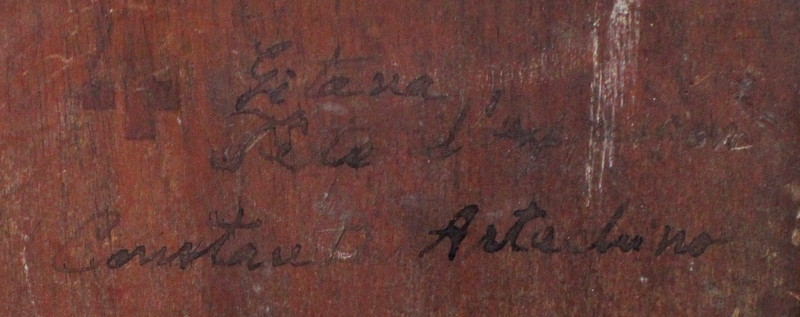 Gitana
Tête d'expression
Constant Artachino